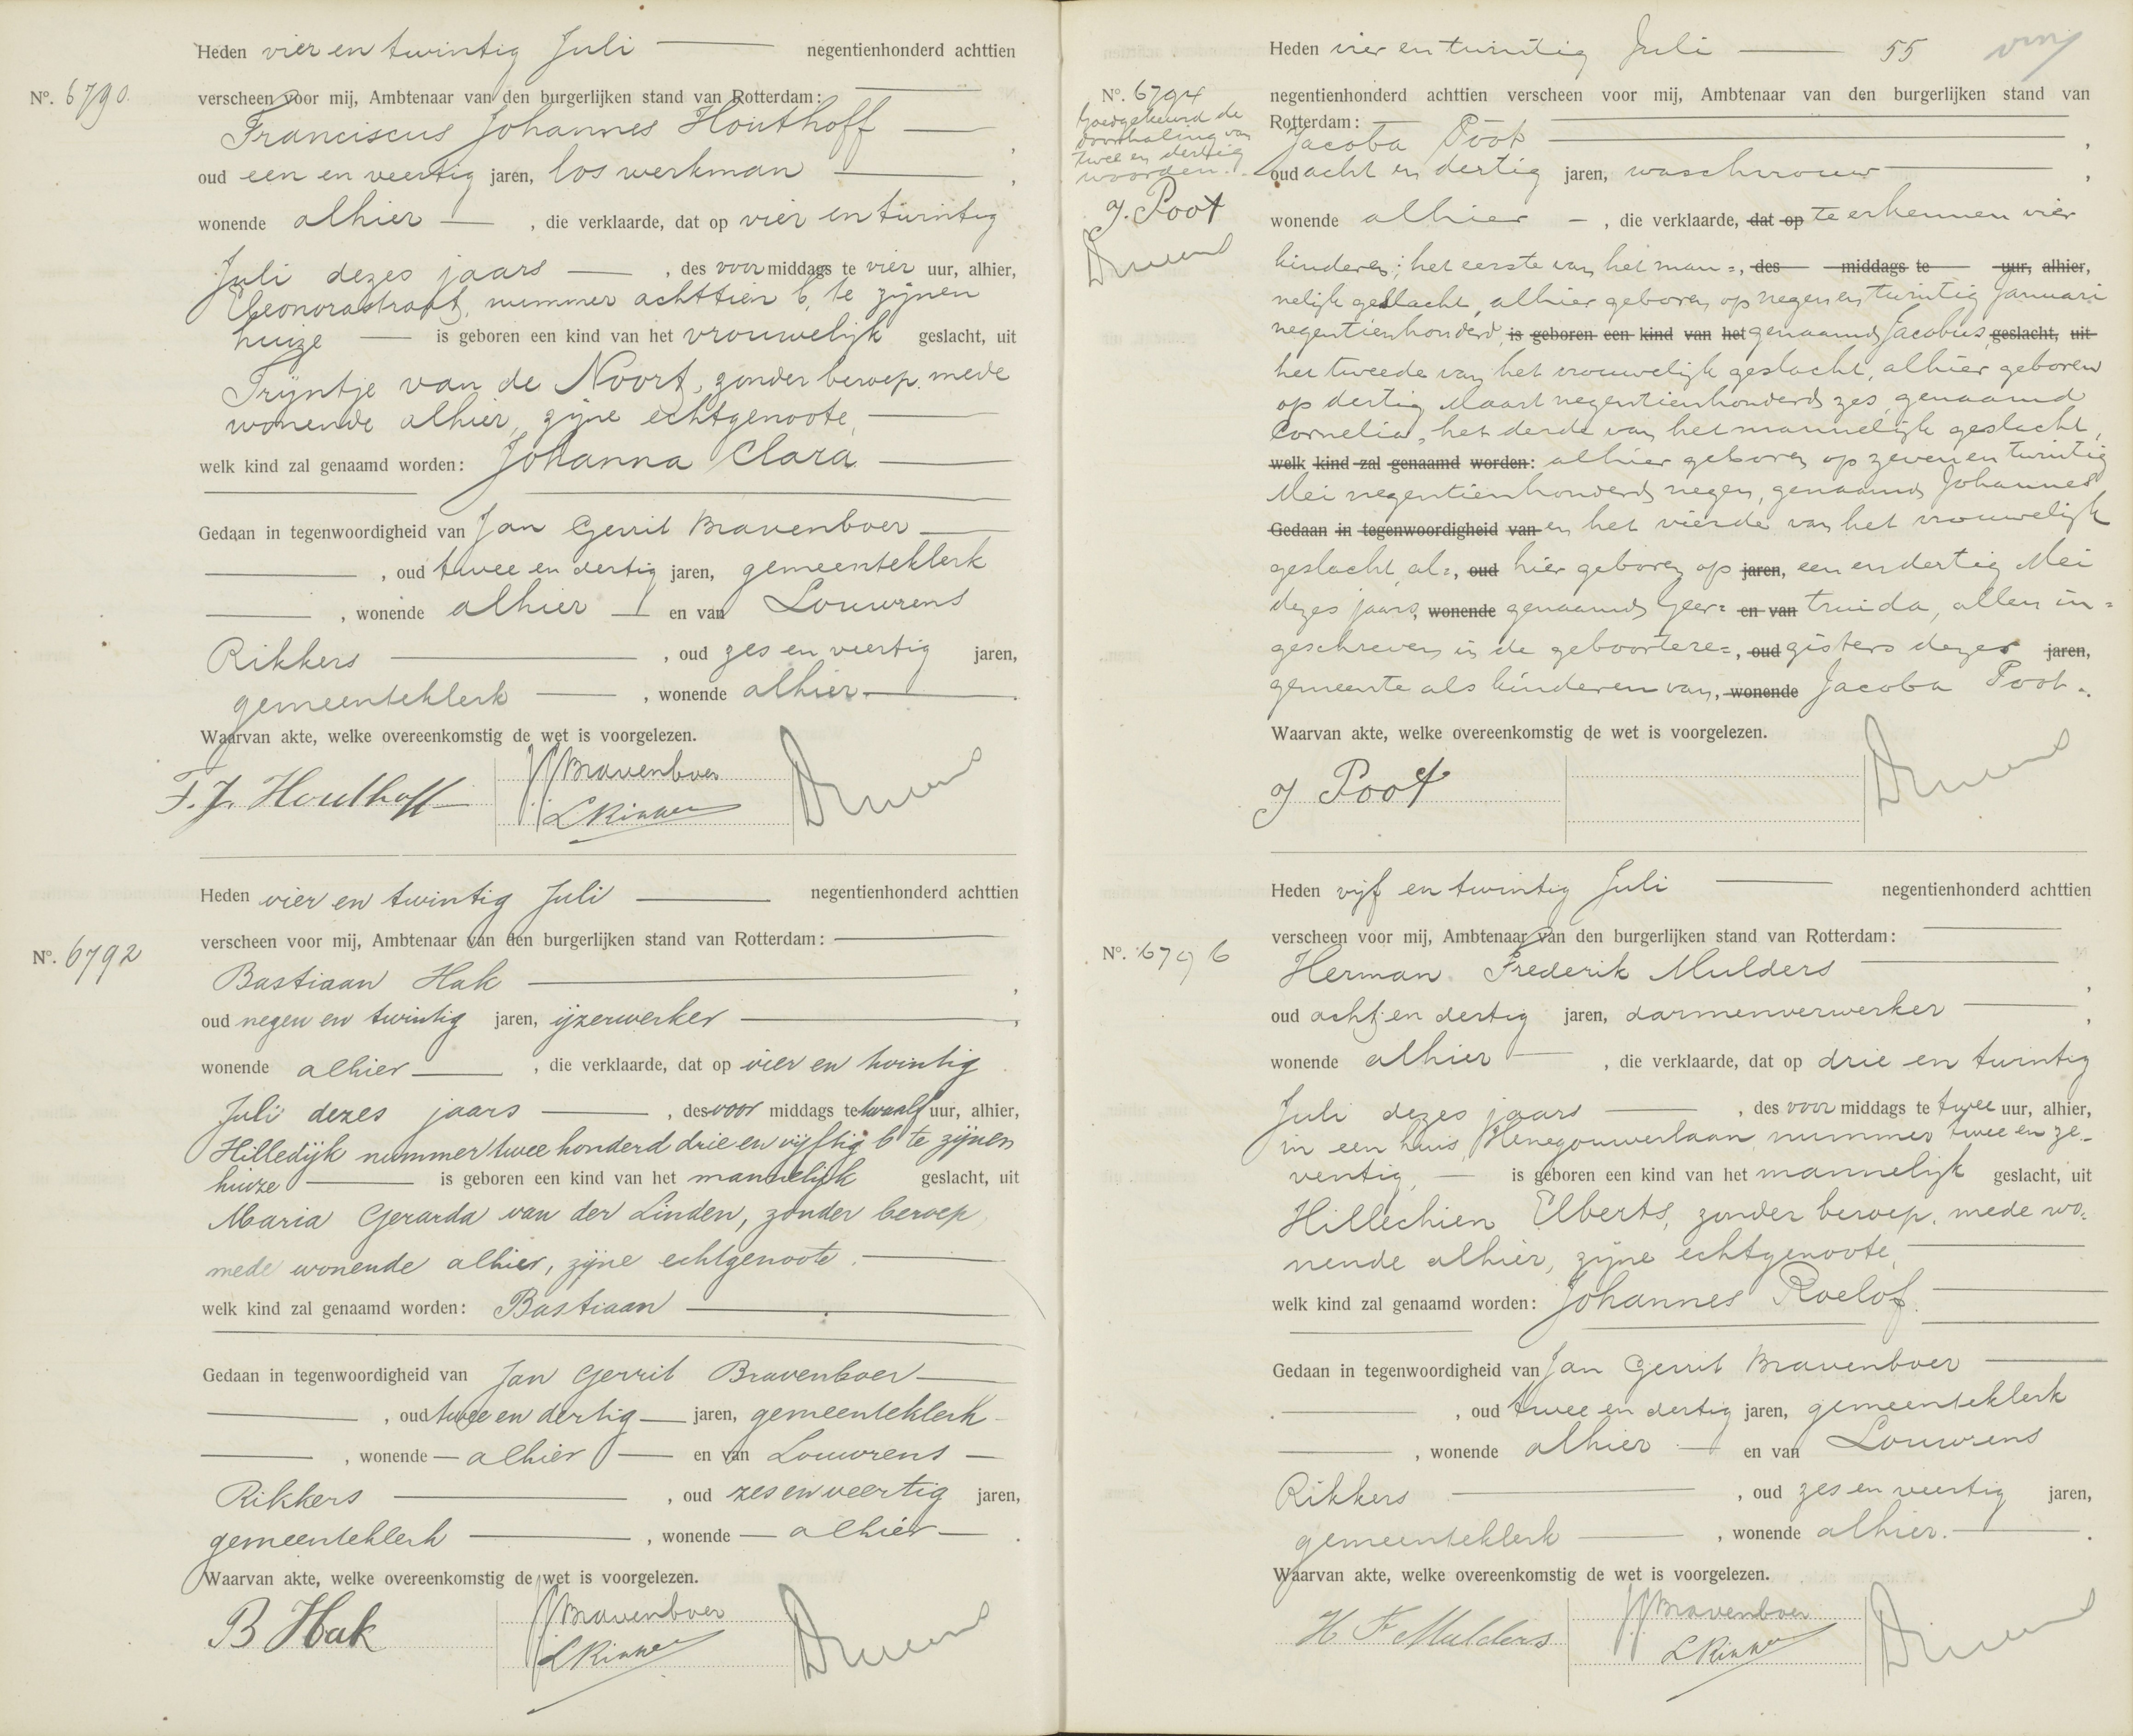 Heden vier en twintig Juli negentienhonderd achttien
No. 6790.
verscheen voor mij, Ambtenaar van den burgerlijken stand van Rotterdam:
Franciscus Johannes Houthoff ,
oud een en veertig jaren, los werkman ,
wonende alhier , die verklaarde, dat op vier en twintig
Juli dezes jaars , des voor middags te vier uur, alhier,
Eleonorastraat, nummer achttien b, te zijnen
huize is geboren een kind van het vrouwelijk geslacht, uit
Trijntje van de Noort, zonder beroep, mede
wonende alhier, zijne echtgenoote,
welk kind zal genaamd worden: Johanna Clara
Gedaan in tegenwoordigheid van Jan Gerrit Bravenboer
, oud twee en dertig jaren, gemeenteklerk
, wonende alhier en van Louwrens
Rikkers , oud zes en veertig jaren,
gemeenteklerk , wonende alhier .
Waarvan akte, welke overeenkomstig de wet is voorgelezen.
F. J. Houthoff
JGBravenboer
LRikkers
Heden vier en twintig Juli negentienhonderd achttien
verscheen voor mij, Ambtenaar van den burgerlijken stand van Rotterdam:
No. 6792
Bastiaan Hak ,
oud negen en twintig jaren, ijzerwerker ,
wonende alhier , die verklaarde, dat op vier en twintig
Juli dezes jaars , des voor middags te twaalf uur, alhier,
Hilledijk nummer twee honderd drie en vijftig b te zijnen
huize is geboren een kind van het mannelijk geslacht, uit
Maria Gerarda van der Linden, zonder beroep,
mede wonende alhier, zijne echtgenoote.
welk kind zal genaamd worden: Bastiaan
Gedaan in tegenwoordigheid van Jan Gerrit Bravenboer
, oud twee en dertig jaren, gemeenteklerk
, wonende alhier en van Louwrens
Rikkers , oud zes en veertig jaren,
gemeenteklerk , wonende alhier .
Waarvan akte, welke overeenkomstig de wet is voorgelezen.
B Hak
JGBravenboer
LRikkers
Heden vier en twintig Juli 55
No. 6794
negentienhonderd achttien verscheen voor mij, Ambtenaar van den burgerlijken stand van
Goedgekeurd de
doorhaling van
twee en dertig
woorden.
J. Poot
Rotterdam: Jacoba Poot ,
oud acht en dertig jaren, waschvrouw ,
wonende alhier , die verklaarde, dat op te erkennen vier
kinderen; het eerste van het man=, des middags te uur, alhier,
nelijk geslacht, alhier geboren op negen en twintig Januari
negentienhonderd, is geboren een kind van het genaamd Jacobus, geslacht, uit
het tweede van het vrouwelijk geslacht, alhier geboren
op dertig Maart negentienhonderd zes, genaamd
Cornelia, het derde van het mannelijk geslacht,
welk kind zal genaamd worden: alhier geboren op zeven en twintig
Mei negentienhonderd negen, genaamd Johannes
Gedaan in tegenwoordigheid van en het vierde van het vrouwelijk
geslacht, al=, oud hier geboren op jaren, een en dertig Mei
dezes jaars, wonende genaamd Geer= en van truida, allen in=
geschreven in de geboortere=, oud gisters dezer jaren,
gemeente als kinderen van, wonende Jacoba Poot.
Waarvan akte, welke overeenkomstig de wet is voorgelezen.
J Poot
Heden vijf en twintig Juli negentienhonderd achttien
verscheen voor mij, Ambtenaar van den burgerlijken stand van Rotterdam:
No. 6796
Herman Frederik Mulders ,
oud acht en dertig jaren, darmenverwerker ,
wonende alhier , die verklaarde, dat op drie en twintig
Juli dezes jaars , des voor middags te twee uur, alhier,
in een huis, Henegouwerlaan nummer twee en ze-
ventig, is geboren een kind van het mannelijk geslacht, uit
Hillechien Elberts, zonder beroep, mede wo=
nende alhier, zijne echtgenoote,
welk kind zal genaamd worden: Johannes Roelof.
Gedaan in tegenwoordigheid van Jan Gerrit Bravenboer
, oud twee en dertig jaren, gemeenteklerk
, wonende alhier en van Louwrens
Rikkers , oud zes en veertig jaren,
gemeenteklerk , wonende alhier. .
Waarvan akte, welke overeenkomstig de wet is voorgelezen.
H F Mulders
JGBravenboer
LRikkers